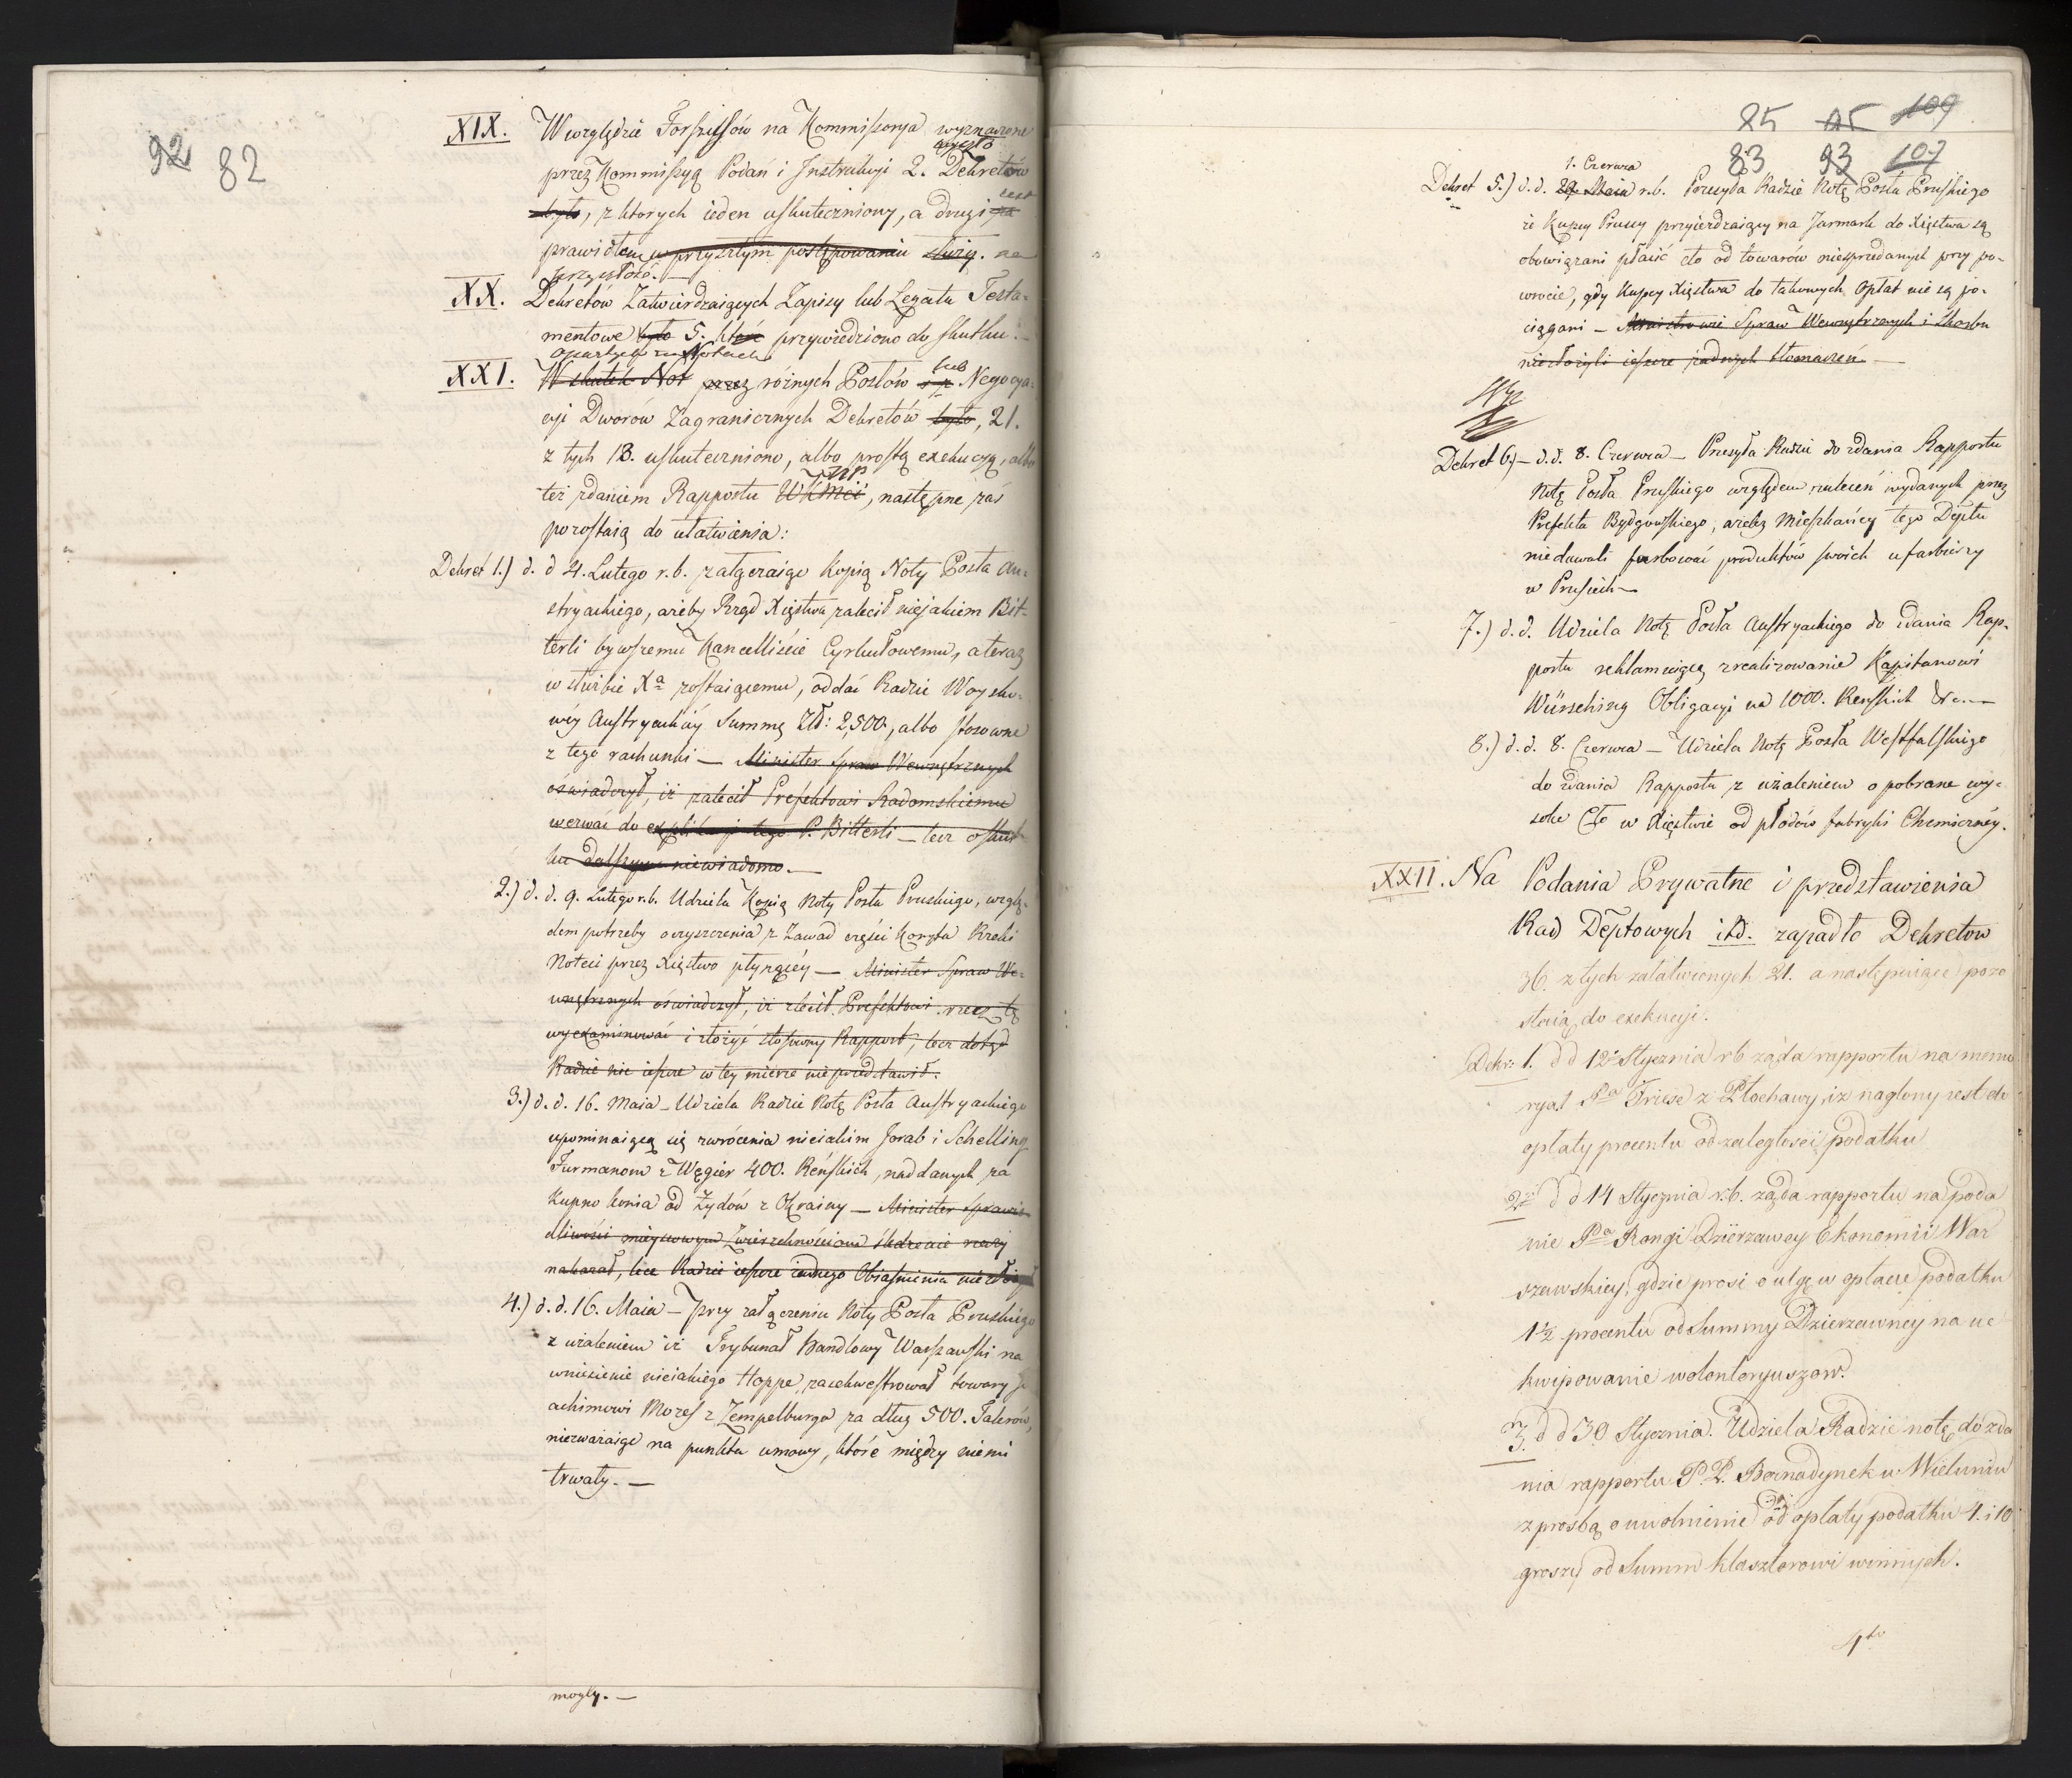 92 82
XIX. Względzie Forszusów na Kommissorya wyznawione
wyszło
przez Kommissyą Podań i Instrukcyi 2. Dekretów
iest
było, z ktorych ieden uskuteczniony, a drugi za
prawidłem w przyszłym postępowaniu służy. na
przyszłość. —
XX. Dekretów Zatwierdzaiących Zapisy lub Legata Testa-
mentowe było 5. które przywiedziono do skutku. —
opartych na Notach lub
XXI. W skutek Not przez różnych Posłów i z Negocya-
cyi Dworów Zagranicznych Dekretów było, 21.
z tych 13. uskuteczniono, albo prostą exekucyą, albo
też zdaniem Rapportu WKMci, następne zaś
pozostaią do ułatwienia:
Dekret 1.) d. d 4. Lutego r. b. załączaiąc kopią Noty Posła Au-
stryackiego, ażeby Rząd Xięstwa zalecił niejakiem Bit-
terli bywszemu Kancelliście Cyrkułowemu, a teraz
w służbie Xa zostaiącemu, oddać Radzie Woysko-
wéy Austryackiéy Summę Złł: 2,500, albo stosowne
z tego rachunki — Minister Spraw Wewnętrznych
oświadczył, iż zalecił Prefektowi Radomskiemu
wezwać do explikacyi tego P. Bitterli — lecz o skut-
ku dalszym niewiadomo. —
2.) d. d. 9. Lutego r. b. Udziela Kopią Noty Posła Pruskiego, wzglę-
dem potrzeby oczyszczenia z Zawad części Koryta Rzeki
Noteci przez Xięstwo płynącéy — Minister Spraw We-
wnętrznych oświadczył, iż zlecił Prefektowi rzecz tę
wyexaminować i złożyć stosowny Rapport, lecz dotąd
Radzie nic ieszcze w tey mierze nie przedstawił.
3.) d. d. 16. Maia — Udziela Radzie Notę Posła Austryackiego
upominaiącą się zwrócenia nieiakim Jorab i Schelling
Furmanom z Węgier 400. Reńskich, naddanych za
Kupno konia od Żydów z Okrainy — Minister Sprawie-
dliwości mieyscowym Zwierzchnościom śledzenie rzeczy
nakazał, lecz Radzie ieszcze żadnego Obiaśnienia nie złożył
4.) d. d. 16. Maia — przy załączeniu Noty Posła Pruskiego
z użaleniem iż Trybunał Handlowy Warszawski na
wniesienie nieiakiego Hoppe, zasekwestrował towary Jo-
achimowi Mozes z Zempelburga za dług 500. Talerów,
niezważaiąc na punkta umowy, które między niemi
trwały. —
mogły. —
85 95 109
83 93 107
1. Czerwca
Dekret 5.) d. d. 29. Maia r. b. Przesyła Radzie Notę Posła Pruskiego
iż Kupcy Pruscy przyieżdżaiący na Jarmark do Xięstwa są
obowiązani płacić cło od towarów niesprzedanych przy po-
wrocie, gdy Kupcy Xięstwa do takowych Opłat nie są po-
ciągani — Ministrowie Spraw Wewnętrznych i Skarbu
niezłożyli ieszcze żadnych tłomaczeń. —
Dekret 6.) — d. d. 8. Czerwca — Przesyła Radzie do zdania Rapportu
Notę Posła Pruskiego względem zaleceń wydanych przez
Prefekta Bydgoskiego, ażeby Mieszkańcy tego Dep̃tu
niedawali farbować produktów swoich u farbierzy
w Prusiech —
7.) d. d. Udziela Notę Posła Austryackiego do zdania Rap-
portu reklamuiącą zrealizowanie Kapitanowi
Würsching Obligacyi na 1000. Reńskich &c. —
8.) d. d. 8. Czerwca — Udziela Notę Posła Westfalskiego
do zdania Rapportu z użaleniem o pobrane wy-
sokie Cło w Xięstwie od płodów fabryki Chemicznéy.
XXII. Na Podania Prywatne i przedstawienia
Rad Dep̃towych itd. zapadło Dekretow
36. z tych załatwionych 21. a następuiące pozo
staią do exekucyi.
Dekr: 1. d d 12 Stycznia r b żąda rapportu na memo
ryał Pa Friese z Płochawy, iż naglony iest do
opłaty procentu od zaległości podatku
2. d d 14 Stycznia r. b. żąda rapportu na poda
nie Pa Rongi Dzierzawcy Ekonomii War
szawskiey, gdzie prosi o ulgę w opłacie podatku
1½ procentu od Summy Dzierzawney na ue
kwipowanie wolonteryuszow.
3. d d 30 Stycznia. Udziela Radzie notę do zda
nia rapportu P. P. Bernadynek w Wieluniu
z prośbą o uwolnienie od opłaty podatku 4. i 10
groszy od Summ klasztorowi winnych.
4to